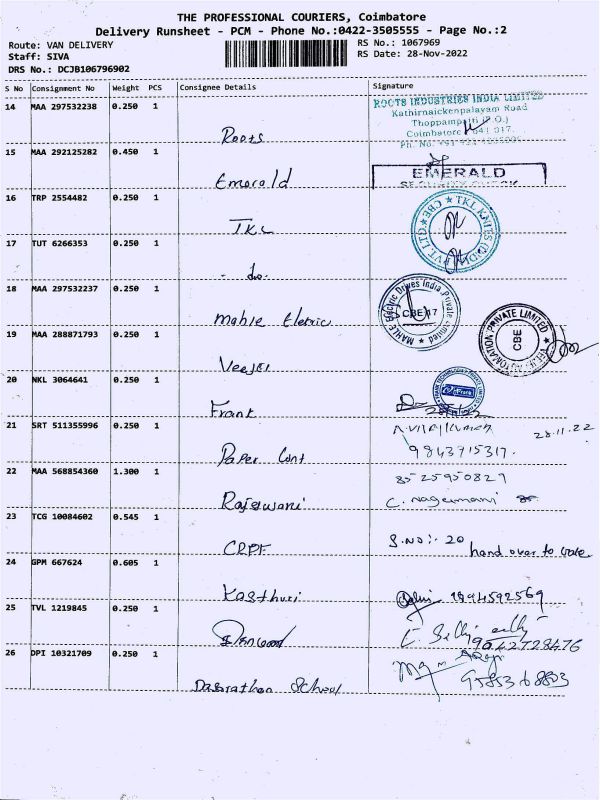 THE PROFESSIONAL COURIERS, Coimbatore
Delivery Runsheet - PCM - Phone No.:0422-3505555 - Page No.:2
Route: VAN DELIVERY
RS No.: 1067969
Staff: SIVA
RS Date: 28-Nov-2022
DRS No.: DCJB106796902
S No Consignment No Weight PCS Consignee Details Signature
14 MAA 297532238 0.250 1
ROOTS INDUSTRIES INDIA LIMITED
Kathirnaickenpalayam Road
Thoppampatti (P.O.)
Coimbatore 641 017.
Roots
15 MAA 292125282 0.450 1
Emerald
EMERALD
SECURITY CHECK
16 TRP 2554482 0.250 1
TKL
TKL KNITS (INDIA) PVT. LTD. ★ CBE ★
17 TUT 6266353 0.250 1
- do -
18 MAA 297532237 0.250 1
Mahle Eletric
MAHLE Electric Drives India Private Limited
CBE 17
19 MAA 288871793 0.250 1
Veejei
AUTOMATION PRIVATE LIMITED
CBE
20 NKL 3064641 0.250 1
Frank
21 SRT 511355996 0.250 1
Paper Cont
A. Vijaykumar 28.11.22
9843715317.
22 MAA 568854360 1.300 1
Rajeswani
8525950829
C. Nagamani
23 TCG 10084602 0.545 1
CRPF
S.NO:- 20
hand over to
24 GPM 667624 0.605 1
Kasthuri
1994592569
25 TVL 1219845 0.250 1
9042728476
26 DPI 10321709 0.250 1
Dasarathan School
9585368803